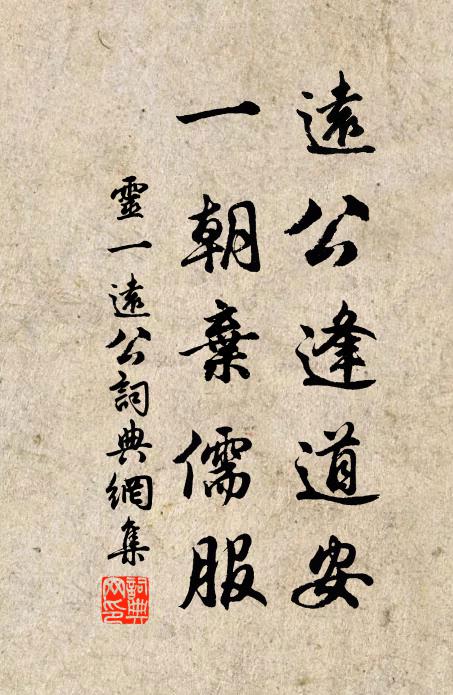 遠公逢道安
一朝棄儒服
靈一遠公詞典網集
詞典
网印